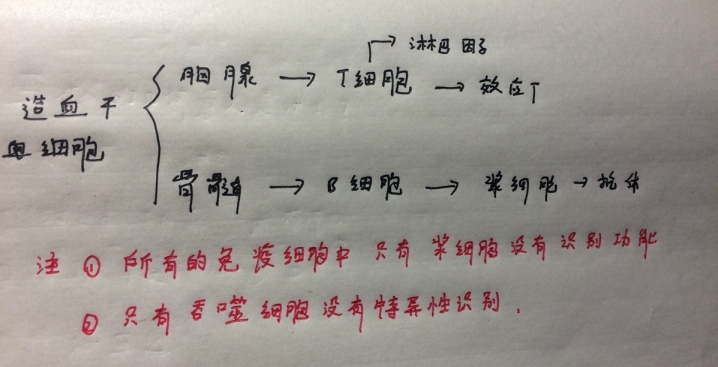 淋巴因子
胸腺 → T细胞 → 效应T
造血干
细胞
骨髓 → B细胞 → 浆细胞 → 抗体
注 ① 所有的免疫细胞中 只有 浆细胞没有识别功能
② 只有吞噬细胞没有特异性识别.